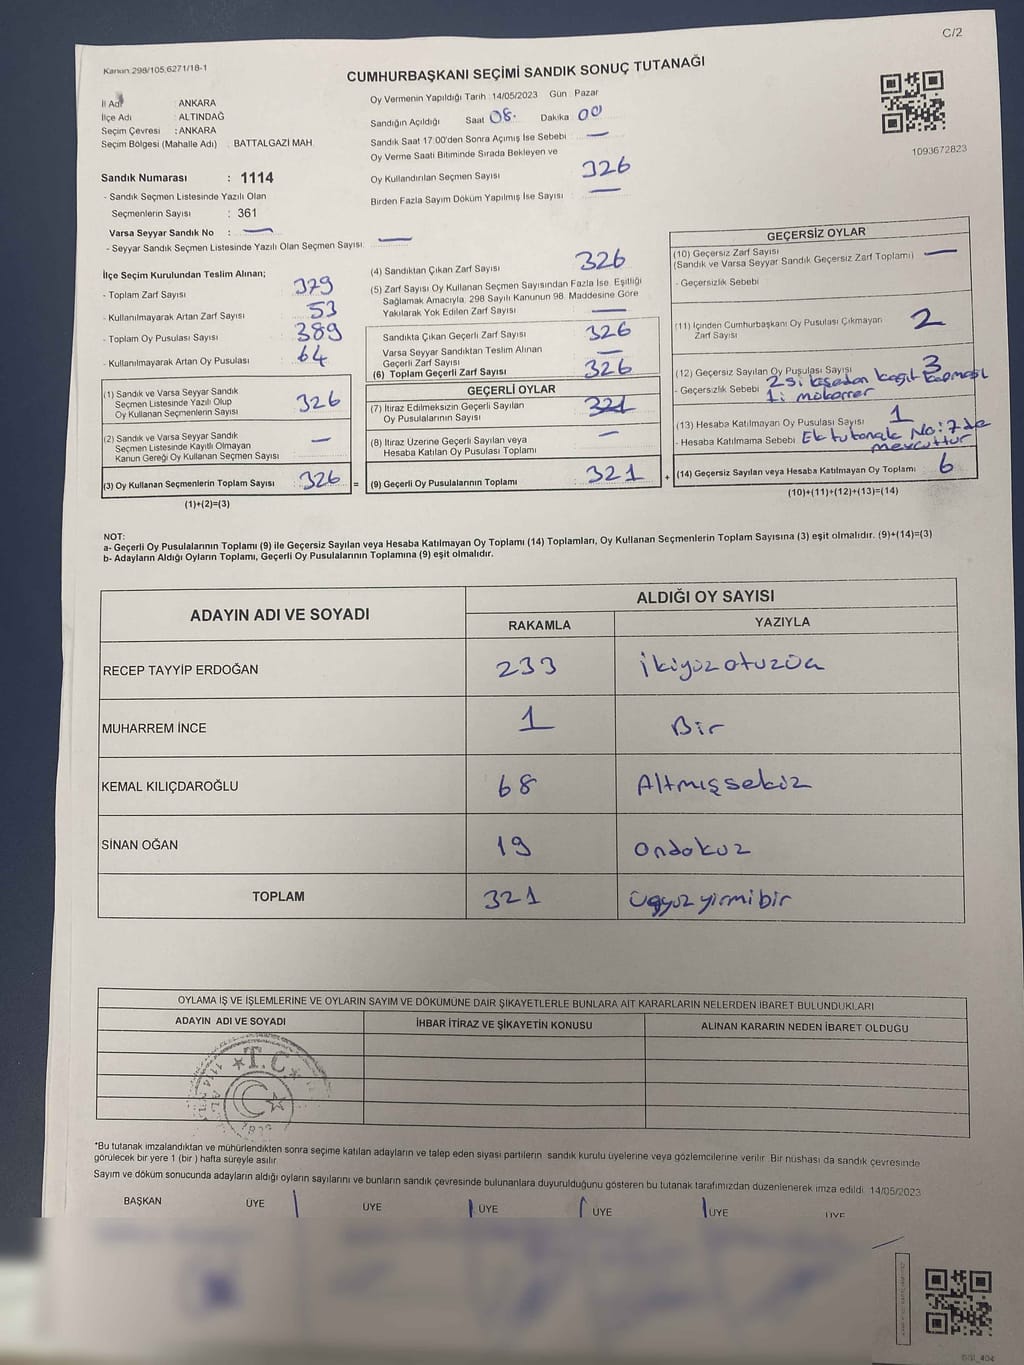 C/2
Kanun:298/105,6271/18-1
CUMHURBAŞKANI SEÇİMİ SANDIK SONUÇ TUTANAĞI
İl Adı : ANKARA
İlçe Adı : ALTINDAĞ
Seçim Çevresi : ANKARA
Seçim Bölgesi (Mahalle Adı) : BATTALGAZİ MAH.
Oy Vermenin Yapıldığı Tarih : 14/05/2023 Gün : Pazar
Sandığın Açıldığı Saat 08. Dakika 00
Sandık Saat 17:00'den Sonra Açımış İse Sebebi —
Oy Verme Saati Bitiminde Sırada Bekleyen ve
Oy Kullandırılan Seçmen Sayısı 326
Birden Fazla Sayım Döküm Yapılmış İse Sayısı : —
1093672823
Sandık Numarası : 1114
- Sandık Seçmen Listesinde Yazılı Olan
Seçmenlerin Sayısı : 361
Varsa Seyyar Sandık No : —
- Seyyar Sandık Seçmen Listesinde Yazılı Olan Seçmen Sayısı: —
İlçe Seçim Kurulundan Teslim Alınan;
- Toplam Zarf Sayısı 379
- Kullanılmayarak Artan Zarf Sayısı 53
- Toplam Oy Pusulası Sayısı 389
- Kullanılmayarak Artan Oy Pusulası 64
(1) Sandık ve Varsa Seyyar Sandık
Seçmen Listesinde Yazılı Olup
Oy Kullanan Seçmenlerin Sayısı 326
(2) Sandık ve Varsa Seyyar Sandık
Seçmen Listesinde Kayıtlı Olmayan
Kanun Gereği Oy Kullanan Seçmen Sayısı —
(3) Oy Kullanan Seçmenlerin Toplam Sayısı 326 =
(1)+(2)=(3)
(4) Sandıktan Çıkan Zarf Sayısı 326
(5) Zarf Sayısı Oy Kullanan Seçmen Sayısından Fazla İse, Eşitliği
Sağlamak Amacıyla, 298 Sayılı Kanunun 98. Maddesine Göre
Yakılarak Yok Edilen Zarf Sayısı —
Sandıkta Çıkan Geçerli Zarf Sayısı 326
Varsa Seyyar Sandıktan Teslim Alınan
Geçerli Zarf Sayısı —
(6) Toplam Geçerli Zarf Sayısı 326
GEÇERLİ OYLAR
(7) İtiraz Edilmeksizin Geçerli Sayılan
Oy Pusulasının Sayısı 321
(8) İtiraz Üzerine Geçerli Sayılan veya
Hesaba Katılan Oy Pusulası Toplamı —
(9) Geçerli Oy Pusulalarının Toplamı 321 +
GEÇERSİZ OYLAR
(10) Geçersiz Zarf Sayısı
(Sandık ve Varsa Seyyar Sandık Geçersiz Zarf Toplamı) —
- Geçersizlik Sebebi
(11) İçinden Cumhurbaşkanı Oy Pusulası Çıkmayan
Zarf Sayısı 2
(12) Geçersiz Sayılan Oy Pusulası Sayısı 3
- Geçersizlik Sebebi 2si kaşeden kağıt
1: mükerrer
(13) Hesaba Katılmayan Oy Pusulası Sayısı 1
- Hesaba Katılmama Sebebi Ek tutanak No:7 de
mevcuttur
(14) Geçersiz Sayılan veya Hesaba Katılmayan Oy Toplamı : 6
(10)+(11)+(12)+(13)=(14)
NOT:
a- Geçerli Oy Pusulalarının Toplamı (9) ile Geçersiz Sayılan veya Hesaba Katılmayan Oy Toplamı (14) Toplamları, Oy Kullanan Seçmenlerin Toplam Sayısına (3) eşit olmalıdır. (9)+(14)=(3)
b- Adayların Aldığı Oyların Toplamı, Geçerli Oy Pusulalarının Toplamına (9) eşit olmalıdır.
ADAYIN ADI VE SOYADI ALDIĞI OY SAYISI
RAKAMLA YAZIYLA
RECEP TAYYİP ERDOĞAN 233 ikiyüzotuzüç
MUHARREM İNCE 1 Bir
KEMAL KILIÇDAROĞLU 68 Altmışsekiz
SİNAN OĞAN 19 ondokuz
TOPLAM 321 üçyüzyirmibir
OYLAMA İŞ VE İŞLEMLERİNE VE OYLARIN SAYIM VE DÖKÜMÜNE DAİR ŞİKAYETLERLE BUNLARA AİT KARARLARIN NELERDEN İBARET BULUNDUKLARI
ADAYIN ADI VE SOYADI İHBAR İTİRAZ VE ŞİKAYETİN KONUSU ALINAN KARARIN NEDEN İBARET OLDUĞU
T.C
*Bu tutanak imzalandıktan ve mühürlendikten sonra seçime katılan adayların ve talep eden siyasi partilerin sandık kurulu üyelerine veya gözlemcilerine verilir. Bir nüshası da sandık çevresinde
görülecek bir yere 1 (bir ) hafta süreyle asılır.
Sayım ve döküm sonucunda adayların aldığı oyların sayılarını ve bunların sandık çevresinde bulunanlara duyurulduğunu gösteren bu tutanak tarafımızdan düzenlenerek imza edildi. 14/05/2023
BAŞKAN ÜYE ÜYE ÜYE ÜYE ÜYE ÜYE